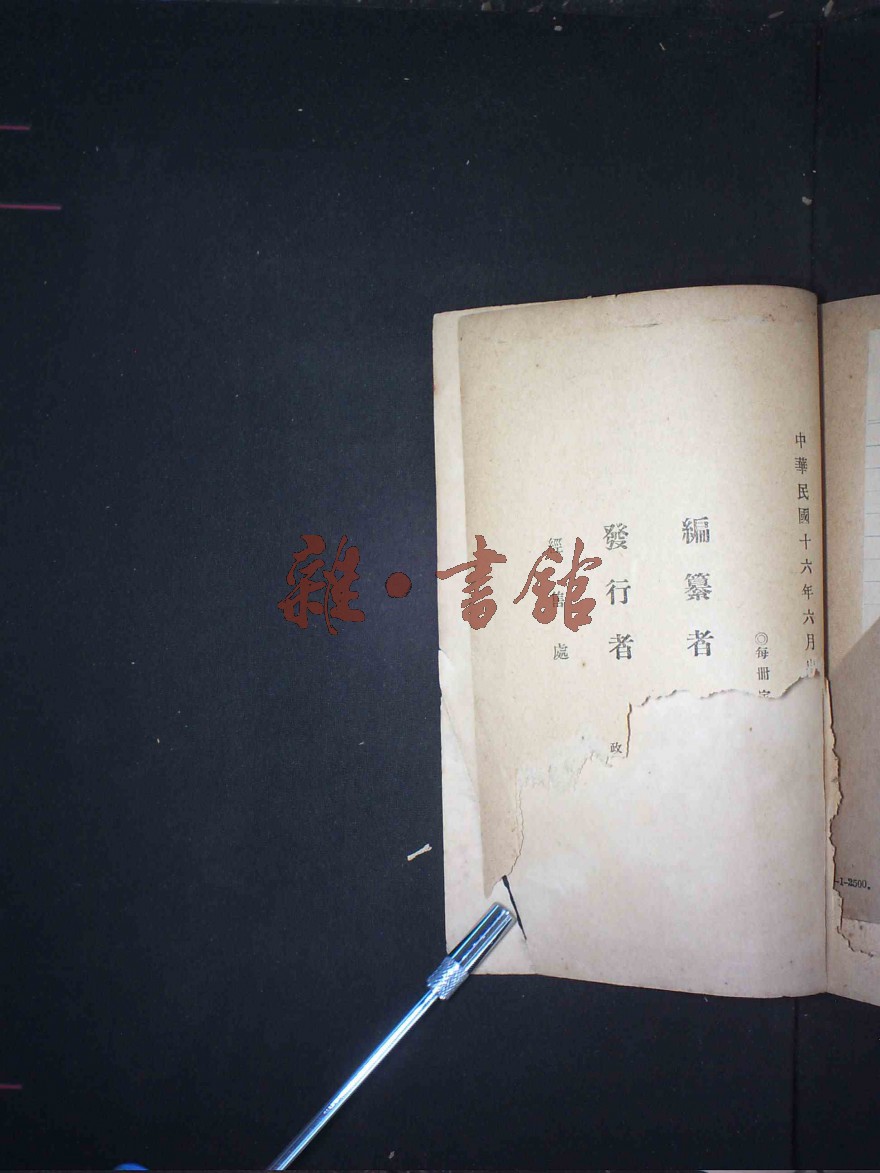 中華民國十六年六月
◎每冊
編纂者
發行者
政
經售處
雜·書館
-1-2500。